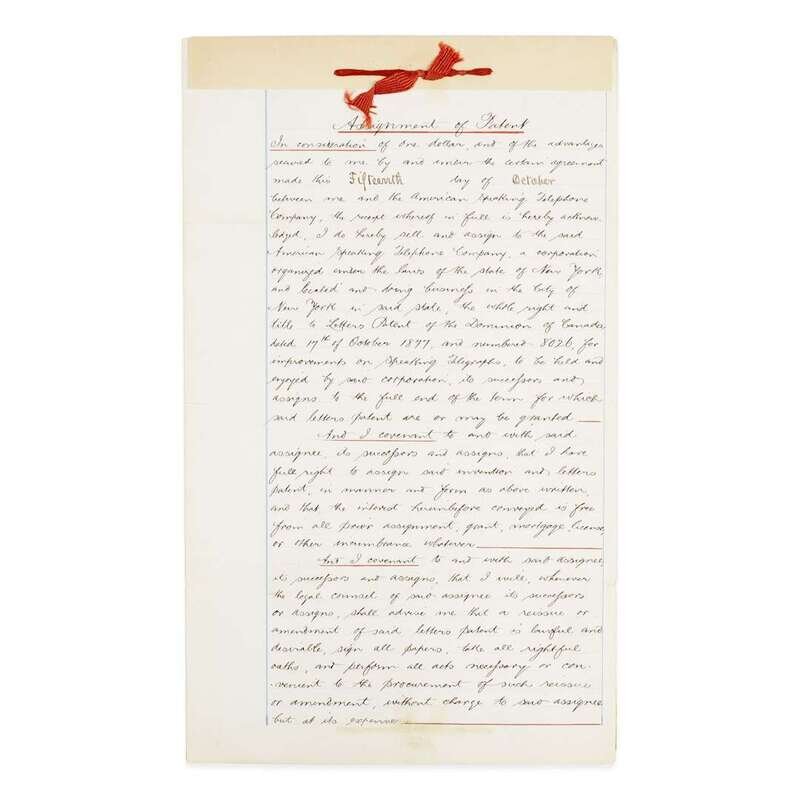 Assignment of Patent
In consideration of one dollar, and of the advantages
secured to me by and under the certain agreement
made this Fifteenth day of October
between me and the American Speaking Telephone
Company, the receipt whereof in full is hereby acknow-
ledged, I do hereby sell and assign to the said
American Speaking Telephone Company, a corporation
organized under the laws of the state of New York
and located and doing business in the City of
New York in said state, the whole right and
title to Letters Patent of the Dominion of Canada
dated 17th of October 1877, and numbered 8026, for
improvements on Speaking Telegraphs, to be held and
enjoyed by said corporation, its successors and
assigns to the full end of the term for which
said letters patent are or may be granted
And I covenant to and with said
assignee, its successors and assigns, that I have
full right to assign said invention and letters
patent, in manner and form as above written,
and that the interest hereinbefore conveyed is free
from all prior assignment, grant, mortgage, license,
or other incumbrance whatever
And I covenant to and with said assignee,
its successors and assigns, that I will, whenever
the legal counsel of said assignee its successors
or assigns, shall advise me that a reissue or
amendment of said letters patent is lawful and
desirable, sign all papers, take all rightful
oaths, and perform all acts necessary or con-
venient to the procurement of such reissue
or amendment, without charge to said assignee
but at its expense